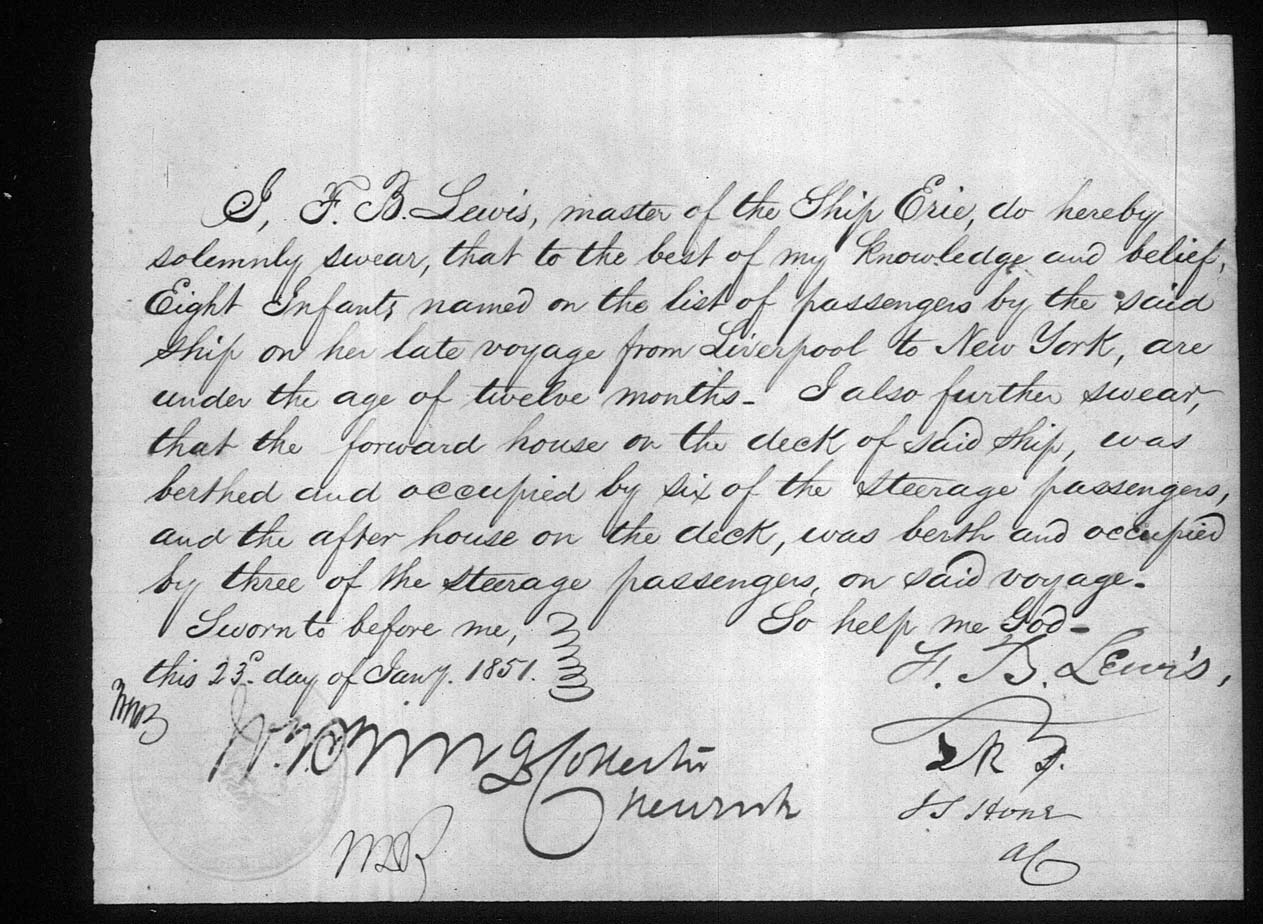 I, F. B. Lewis, master of the Ship Erie, do hereby
solemnly swear, that to the best of my knowledge and belief,
Eight Infants named on the list of passengers by the said
ship on her late voyage from Liverpool to New York, are
under the age of twelve months- I also further swear,
that the forward house on the deck of said ship, was
berthed and occupied by six of the steerage passengers,
and the after house on the deck, was berth and occupied
by three of the steerage passengers, on said voyage.-
Sworn to before me, So help me God-
this 23d. day of Jany. 1851. F. B. Lewis,
Collector
Newark
J S Hone